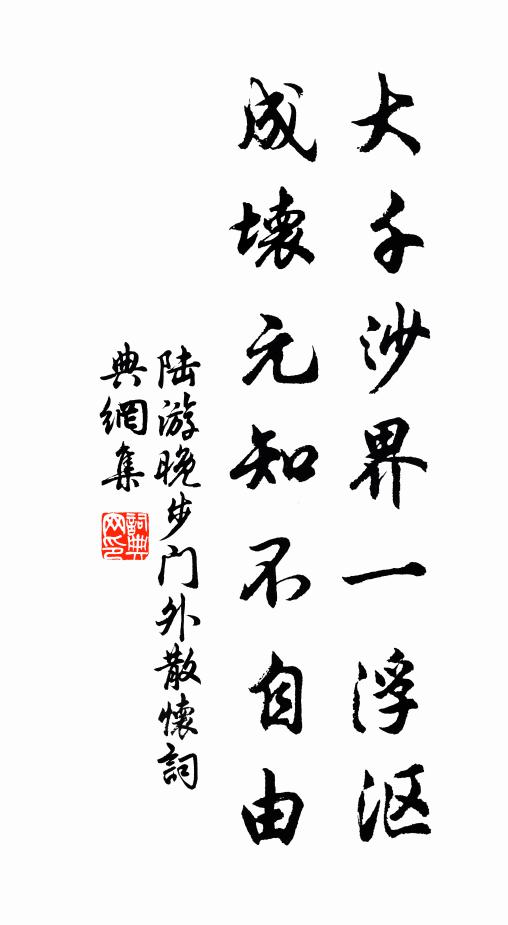 大千沙界一浮沤
成壊元知不自由
陆游晚步门外散懷詞
典網集
詞典网印